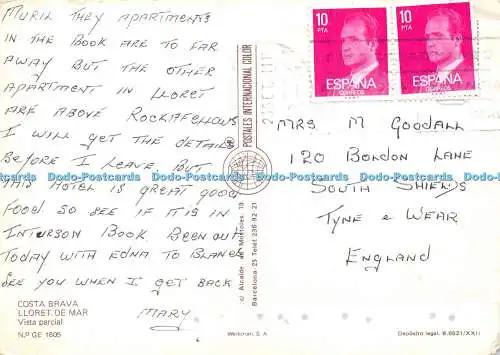 MURIL THEY APARTMENTS
IN THE BOOK ARE TO FAR
AWAY BUT THE OTHER
APARTMENT IN LLORET
ARE ABOVE ROCKAFELLOWS
I WILL GET THE DETAILS
BEFORE I LEAVE, BUT
THIS HOTEL IS GREAT GOOD
FOOD. SO SEE IF IT IS IN
INTURSON BOOK BEEN OUT
TODAY WITH EDNA TO BLANES
SEE YOU WHEN I GET BACK
MARY
COSTA BRAVA
LLORET DE MAR
Vista parcial
N.º GE 1605
POSTALES INTERNACIONAL COLOR
c/ Alcalde de Móstoles, 19
Barcelona-25 Teléf. 236-92-21
10
PTA
ESPAÑA
CORREOS
10
PTA
ESPAÑA
CORREOS
MRS M GOODALL
120 BOLDON LANE
SOUTH SHIELDS
TYNE & WEAR
ENGLAND
Depósito legal. B.6621/XXII
Postcards Postcards Postcards Postcards Postcards